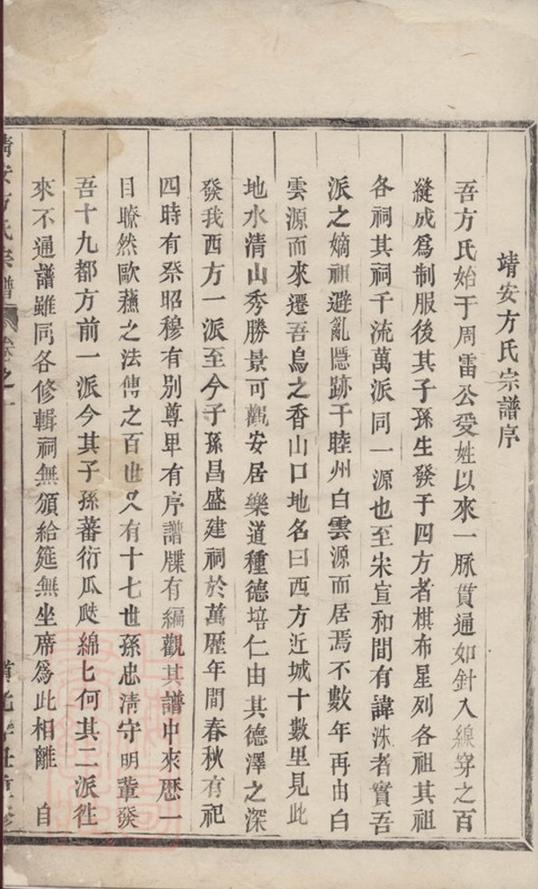 靖安方氏宗譜序
吾方氏始于周雷公受姓以來一脉貫通如針入線穿之百
縫成爲制服後其子孫生發于四方者棋布星列各祖其祖
各祠其祠千流萬派同一源也至宋宣和間有諱洙者實吾
派之嫡祖避亂隱跡于睦州白雲源而居焉不數年再由白
雲源而來遷吾烏之香山口地名曰西方近城十數里見此
地水清山秀勝景可觀安居樂道種德培仁由其德澤之深
發我西方一派至今子孫昌盛建祠於萬歷年間春秋有祀
四時有祭昭穆有別尊卑有序譜牒有編觀其譜中來歷一
目瞭然歐蘓之法傳之百世又有十七世孫忠清守明輩發
吾十九都方前一派今其子孫蕃衍瓜瓞綿匕何其二派徃
來不通譜雖同各修輯祠無頒給筵無坐席爲此相離 自
靖安方氏宗譜 卷之一